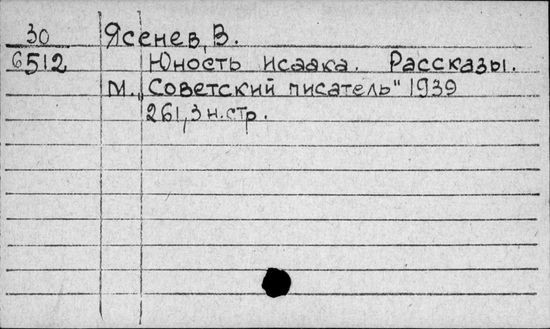 30 Ясенев, В.
6512 Юность Исаака. Рассказы.
М., Советский писатель" 1939
261, 3 н.стр.